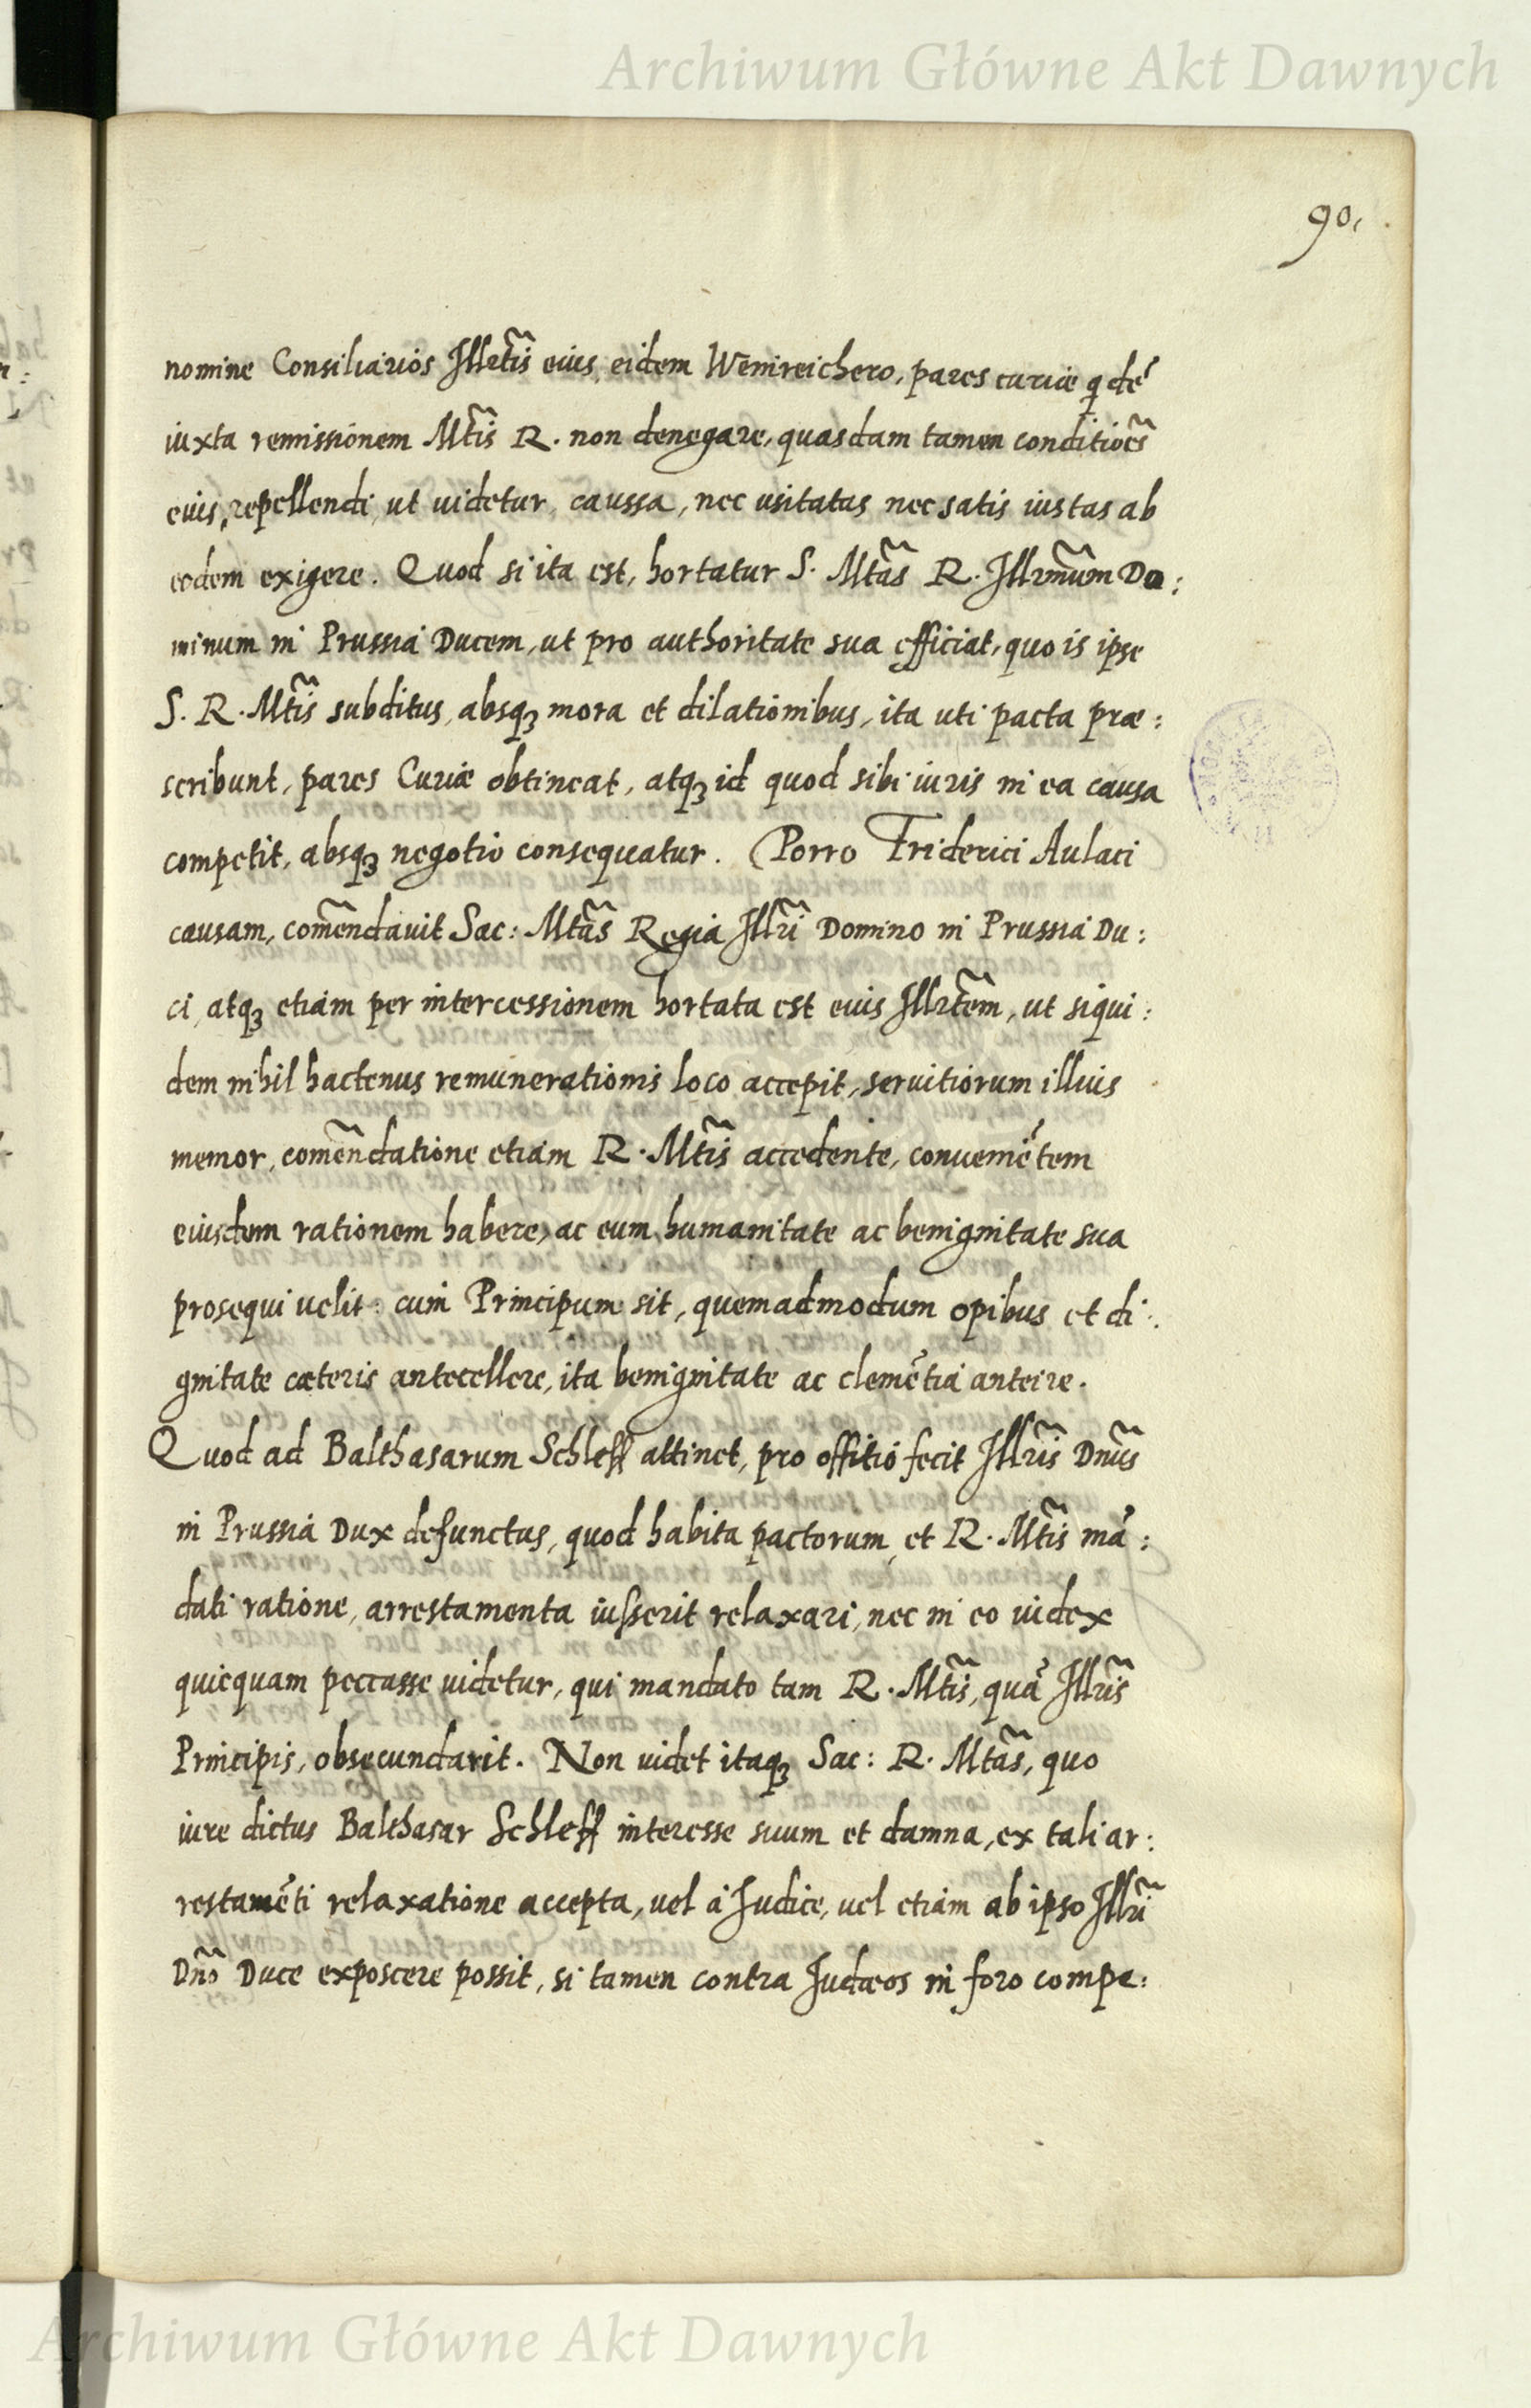 Archiwum Główne Akt Dawnych
90.
nomine Consiliarios Illrtis̃ eius, eidem Weinreichero, pares curiæ qdẽ
iuxta remissionem Mtis̃ R. non denegare, quasdam tamen conditiões
eius, repellendi, ut uidetur, caussa, nec usitatas nec satis iustas ab
eodem exigere. Quod si ita est, hortatur S. Mtas̃ R. Illrmũm Do:
minum in Prussia Ducem, ut pro authoritate sua efficiat, quo is ipse
S. R. Mtis̃ subditus, absqꝫ mora et dilationibus, ita uti pacta præ:
scribunt, pares Curiæ obtineat, atqꝫ id quod sibi iuris in ea causa
competit, absqꝫ negotio consequatur. Porro Friderici Aulaci
causam, com̃endauit Sac: Mtas̃ Regia Illrĩ Domino in Prussia Du:
ci, atqꝫ etiam per intercessionem hortata est eius Illrtem̃, ut siqui:
dem nihil hactenus remunerationis loco accepit, seruitiorum illius
memor, com̃endatione etiam R. Mtis̃ accedente, conueniẽtem
eiusdem rationem habere, ac eum humanitate ac benignitate sua
prosequi uelit: cum Principum sit, quemadmodum opibus et di:
gnitate cæteris antecellere, ita benignitate ac clemẽtia anteire.
Quod ad Balthasarum Schleff attinet, pro offitio fecit Illris̃ Dnus̃
in Prussia Dux defunctus, quod habita pactorum, et R. Mtis̃ mã:
dati ratione, arrestamenta iusserit relaxari, nec in eo iudex
quicquam peccasse uidetur, qui mandato tam R. Mtis̃, quã Illris̃
Principis, obsecundarit. Non uidet itaqꝫ Sac: R. Mtas̃, quo
iure dictus Balthasar Schleff interesse suum et damna, ex tali ar:
restamẽti relaxatione accepta, uel à Iudice, uel etiam ab ipso Illrĩ
Dnõ Duce exposcere possit, si tamen contra Iudæos in foro compe:
Archiwum Główne Akt Dawnych